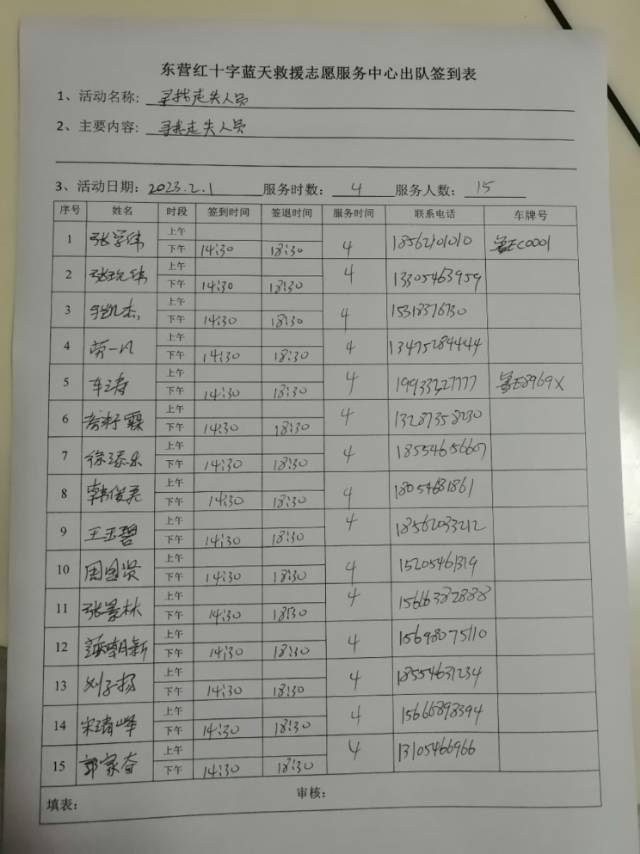 东营红十字蓝天救援志愿服务中心出队签到表
1、活动名称: 寻找走失人员
2、主要内容: 寻找走失人员
3、活动日期: 2023.2.1 服务时数: 4 服务人数: 15
序号 姓名 时段 签到时间 签退时间 服务时间 联系电话 车牌号
上午
1 张学伟 4 18562101010 鲁EC0001
下午 14:30 18:30
上午
2 4 13305463959
下午 14:30 18:30
上午
3 4 15318376730
下午 14:30 18:30
上午
4 劳一凡 4 13475284444
下午 14:30 18:30
上午
5 车涛 4 19933227777 鲁E8969X
下午 14:30 18:30
上午
6 4 13287358230
下午 14:30 18:30
上午
7 徐添乐 4 18554656607
下午 14:30 18:30
上午
8 韩俊亮 4 18054681861
下午 14:30 18:30
上午
9 王玉碧 4 18562033212
下午 14:30 18:30
上午
10 周国贤 4 15205461319
下午 14:30 18:30
上午
11 张景林 4 15616382888
下午 14:30 18:30
上午
12 4 15698075110
下午 14:30 18:30
上午
13 刘子扬 4 18554631234
下午 14:30 18:30
上午
14 宋靖峰 4 15666898394
下午 14:30 18:30
上午
15 郭家奋 4 13105466966
下午 14:30 18:30
填表: 审核: